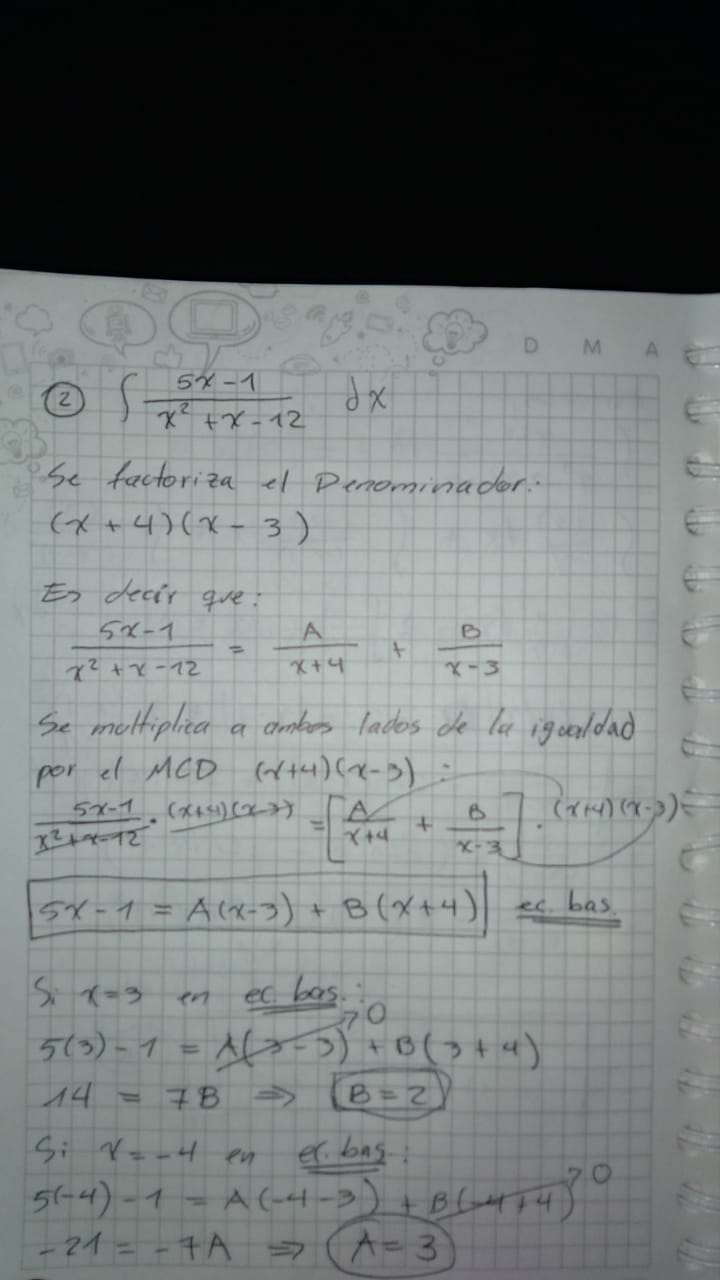 D M A
② ∫ (5x-1)/(x² + x - 12) dx
Se factoriza el Denominador:
(x + 4)(x - 3)
Es decir que:
(5x-1)/(x² + x - 12) = A/(x+4) + B/(x-3)
Se multiplica a ambos lados de la igualdad
por el MCD (x+4)(x-3) :
(5x-1)/(x²+x-12) · (x+4)(x-3) = [A/(x+4) + B/(x-3)] · (x+4)(x-3)
5x - 1 = A(x-3) + B(x+4) ec. bas.
Si x=3 en ec. bas.:
5(3) - 1 = A(3-3) → 0 + B(3+4)
14 = 7B ⇒ B = 2
Si x = -4 en ec. bas.:
5(-4) - 1 = A(-4-3) + B(-4+4) → 0
-21 = -7A ⇒ A = 3